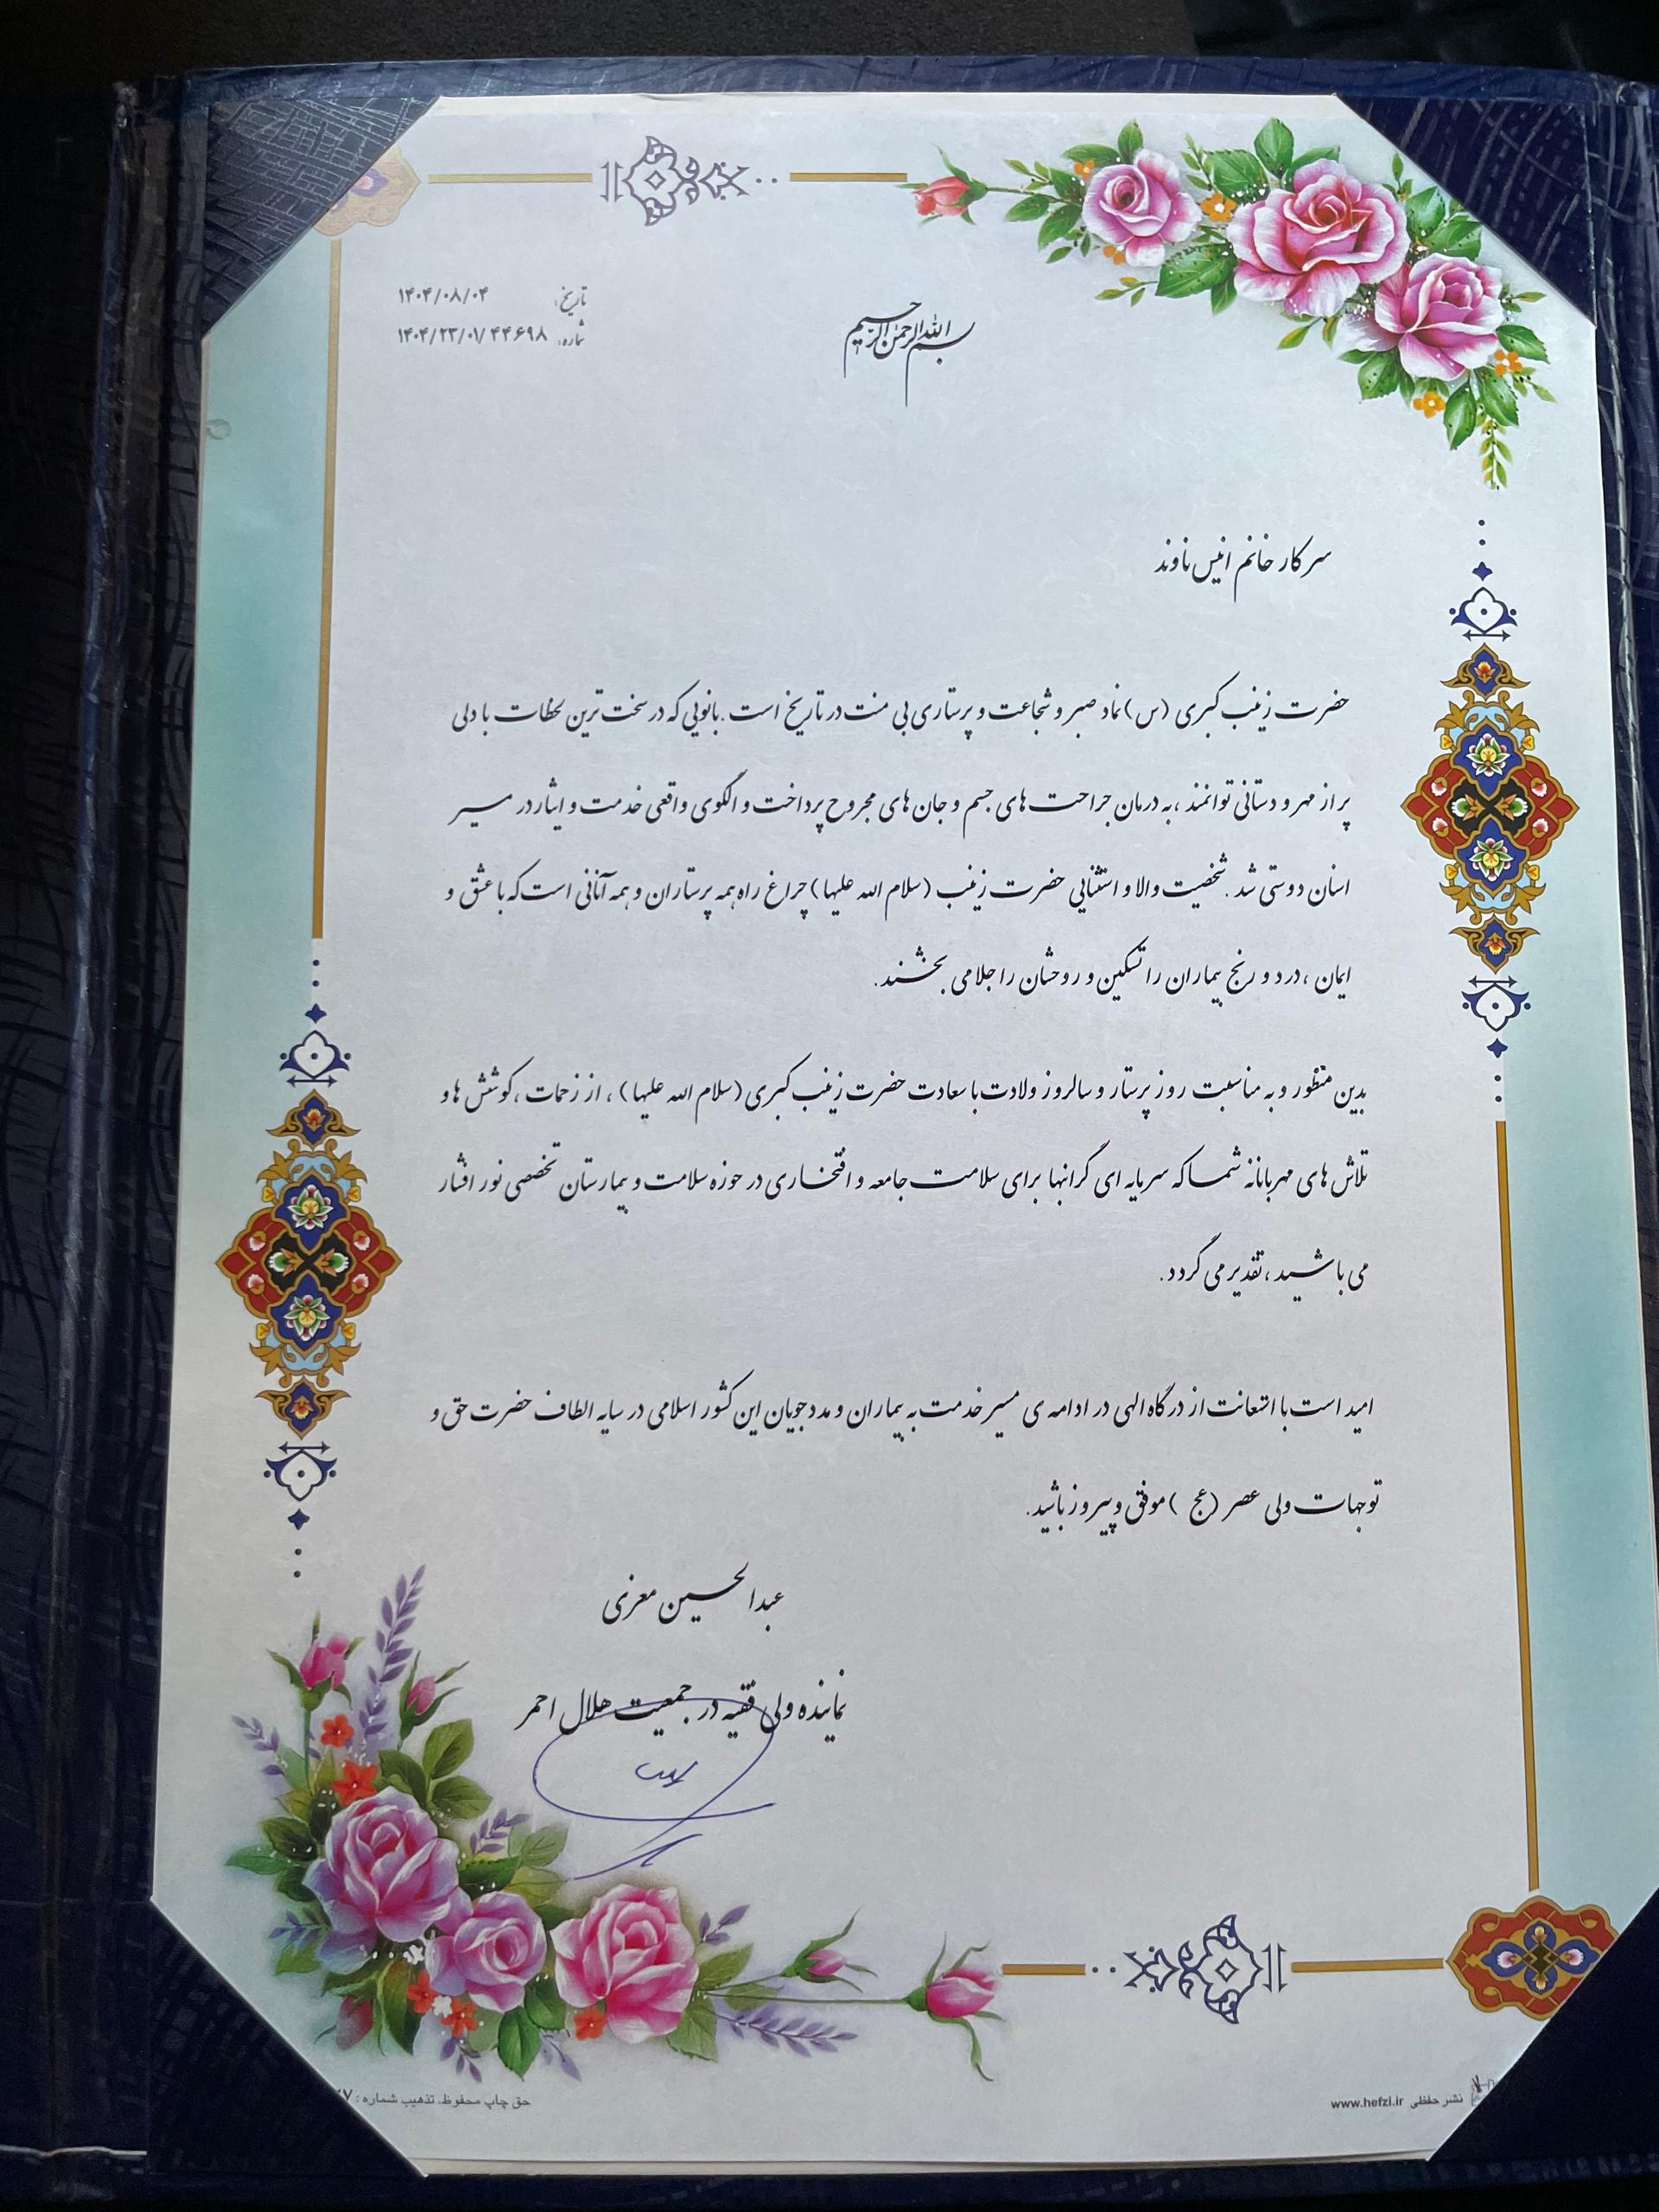 بسم الله الرحمن الرحیم
تاریخ: ۱۴۰۴/۰۸/۰۴
شماره: ۱۴۰۴/۲۳/۰۱/۴۴۶۹۸
سرکار خانم انیس ناوند
حضرت زینب کبری (س) نماد صبر و شجاعت و پرستاری بی منت در تاریخ است. بانویی که در سخت ترین لحظات با دلی
پر از مهر و دستانی توانمند، به درمان جراحت های جسم و جان های مجروح پرداخت و الگوی واقعی خدمت و ایثار در مسیر
انسان دوستی شد. شخصیت والا و استثنایی حضرت زینب (سلام الله علیها) چراغ راه همه پرستاران و همه آنانی است که با عشق و
ایمان، درد و رنج بیماران را تسکین و روحشان را جلا می بخشند.
بدین منظور و به مناسبت روز پرستار و سالروز ولادت با سعادت حضرت زینب کبری (سلام الله علیها)، از زحمات، کوشش ها و
تلاش های مهربانانه شما که سرمایه ای گرانبها برای سلامت جامعه و افتخاری در حوزه سلامت و بیمارستان تخصصی نور افشار
می باشید، تقدیر می گردد.
امید است با استعانت از درگاه الهی در ادامه ی مسیر خدمت به بیماران و مددجویان این کشور اسلامی در سایه الطاف حضرت حق و
توجهات ولی عصر (عج) موفق و پیروز باشید.
عبدالحسین معزی
نماینده ولی فقیه در جمعیت هلال احمر
نشر حفظی www.hefzi.ir
حق چاپ محفوظ، تذهیب شماره: